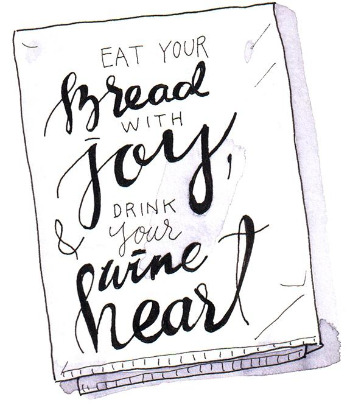 EAT YOUR
Bread
WITH
joy,
& DRINK
your
wine
heart